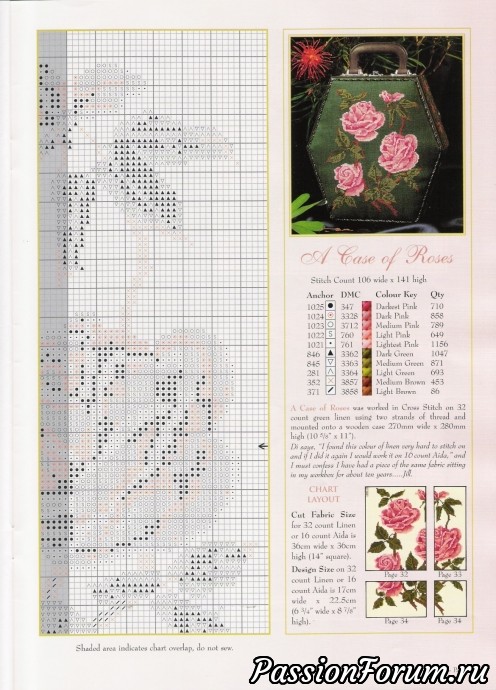 A Case of Roses
Stitch Count 106 wide x 141 high
Anchor DMC Colour Key Qty
1025 347 Darkest Pink 710
1024 3328 Dark Pink 858
1023 3712 Medium Pink 789
1022 760 Light Pink 649
1021 761 Lightest Pink 1156
846 3362 Dark Green 1047
845 3363 Medium Green 571
281 3364 Light Green 693
382 3857 Medium Brown 453
371 3858 Light Brown 86
A Case of Roses was worked in Cross Stitch on 32
count green linen using two strands of thread and
mounted onto a wooden case 270mm wide x 280mm
high (10 5/8" x 11").
Di says, "I found this colour of linen very hard to stitch on
and if I did it again I would work it on 16 count Aida," and
I must confess I have had a piece of the same fabric sitting
in my workbox for about ten years.....Jill.
CHART
LAYOUT
Cut Fabric Size
for 32 count Linen
or 16 count Aida is
36cm wide x 36cm
high (14" square).
Design Size on 32
count Linen or 16
count Aida is 17cm
wide x 22.5cm
(6 3/4" wide x 8 7/8"
high).
Page 32
Page 33
Page 34
Page 34
Shaded area indicates chart overlap, do not sew.
PassionForum.ru